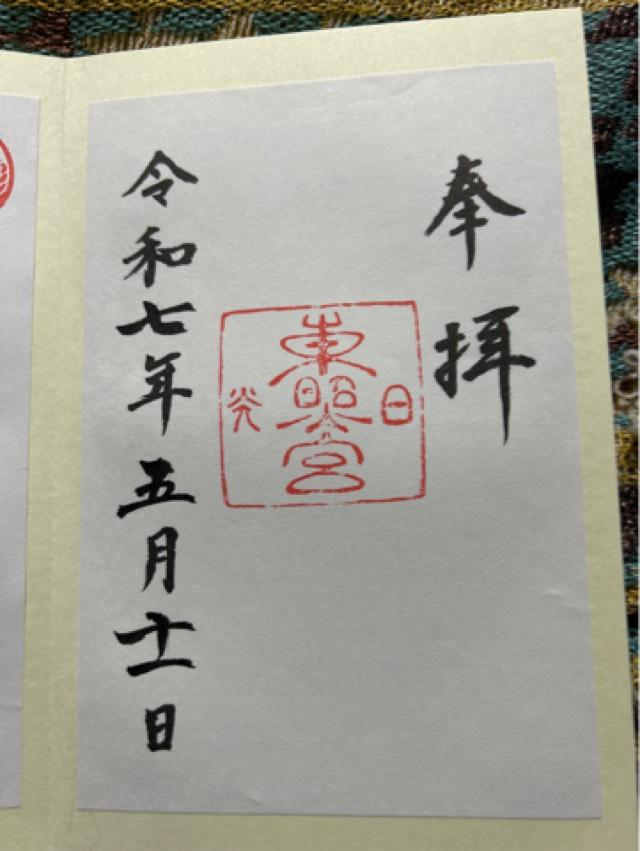 奉拝
日光
東照宮
令和七年五月十一日